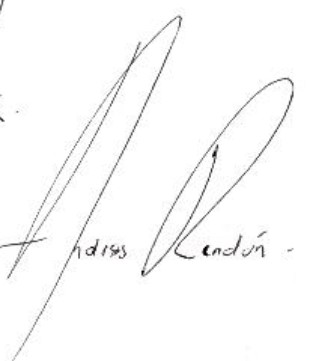 Andres Rendón.